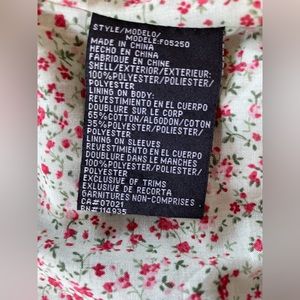 STYLE/MODELO/
MODELE:F05250
MADE IN CHINA
HECHO EN CHINA
FABRIQUE EN CHINE
SHELL/EXTERIOR/EXTERIEUR:
100%POLYESTER/POLIESTER/
POLYESTER
LINING ON BODY:
REVESTIMIENTO EN EL CUERPO
DOUBLURE SUR LE CORP
65%COTTON/ALGODON/COTON
35%POLYESTER/POLIESTER/
POLYESTER
LINING ON SLEEVES
REVESTIMIENTO EN EL CUERPO
DOUBLURE DANS LE MANCHES
100%POLYESTER/POLIESTER/
POLYESTER
EXCLUSIVE OF TRIMS
EXLUSIVE DE RECORTA
GARNITURES NON-COMPRISES
CA#07021
RN#114935